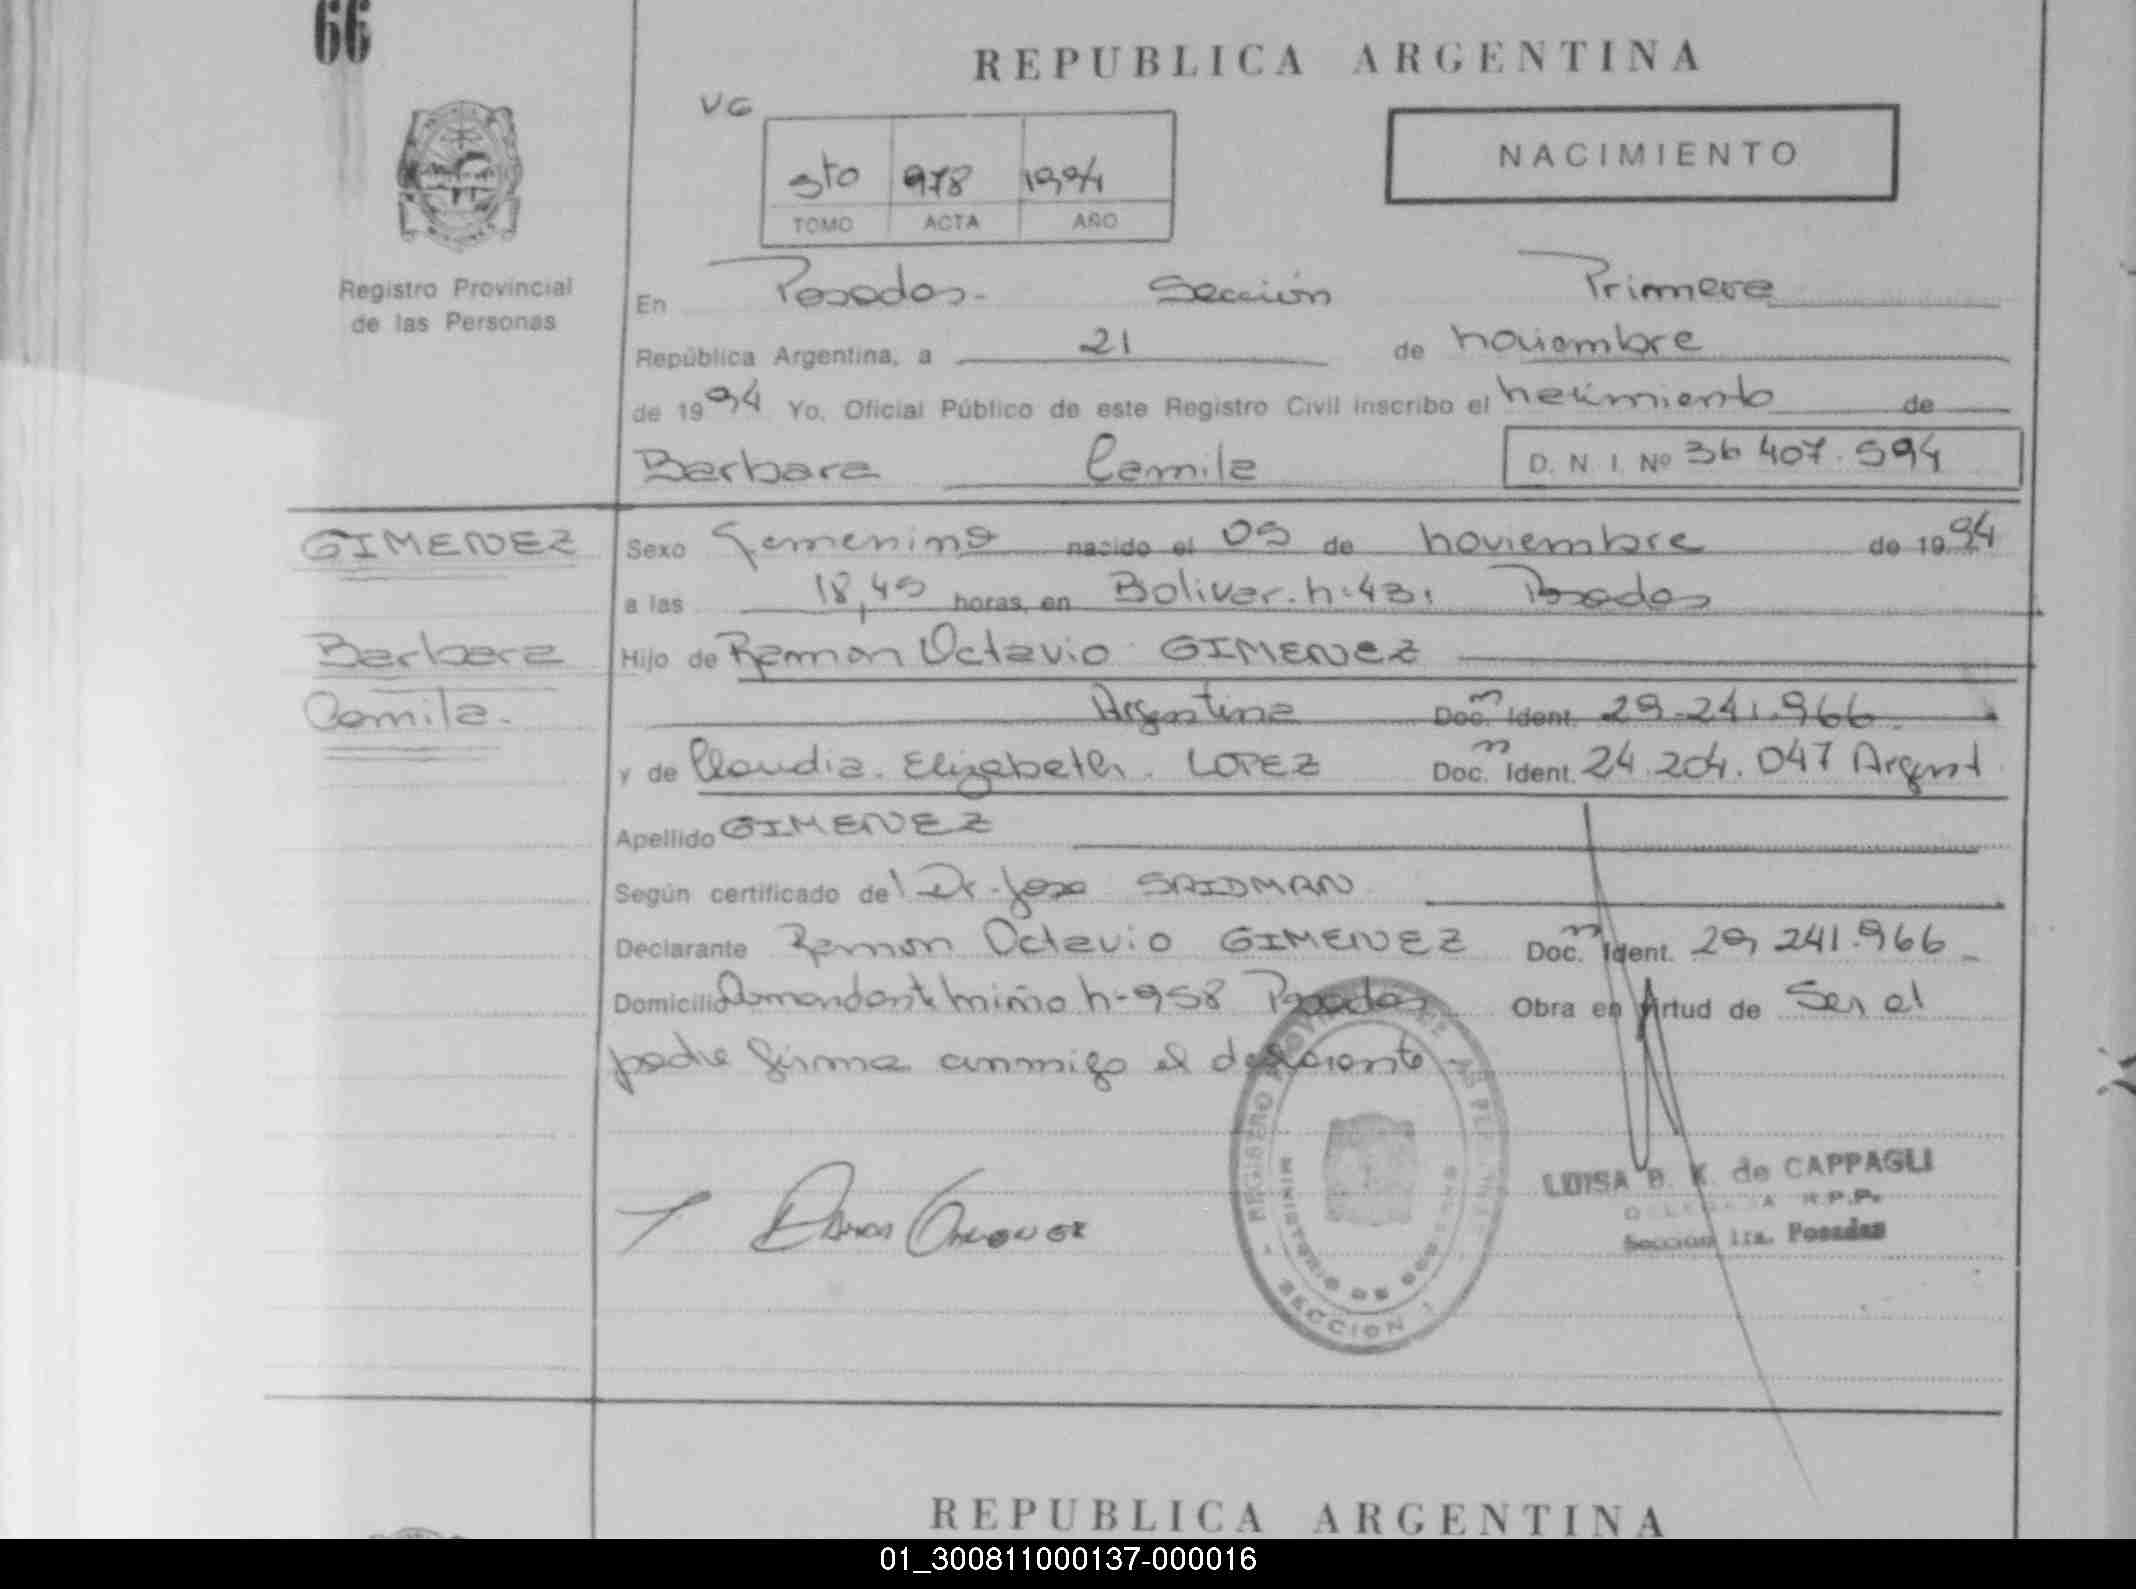 66
REPUBLICA ARGENTINA
VG
NACIMIENTO
5to 978 1994
TOMO ACTA AÑO
Registro Provincial
de las Personas
En Posadas- Sección Primera
República Argentina, a 21 de noviembre
de 1994 Yo, Oficial Público de este Registro Civil inscribo el nacimiento de
Barbara Camila D. N. I. Nº 36 407.594
GIMENEZ
Sexo femenino nacido el 05 de noviembre de 1994
a las 18,45 horas, en Bolivar. n: 431 Posadas
Barbara
Hijo de Ramon Octavio GIMENEZ
Camila.
Argentina Doc. Ident. 29.241.966
y de Claudia. Elizabeth. LOPEZ Doc. Ident. 24.204.047 Argent
Apellido GIMENEZ
Según certificado del Dr. Jose SAIDMAN
Declarante Ramon Octavio GIMENEZ Doc. Ident. 29 241.966
Domicilio miño n-958 Posadas Obra en virtud de Ser el
padre firma conmigo el
REGISTRO PROVINCIAL DE LAS PERSONAS
MINISTERIO DE GOBIERNO
SECCION 1
LUISA B. K. de CAPPAGLI
DELEGADA R.P.P.
Sección 1ra. Posadas
REPUBLICA ARGENTINA
01_300811000137-000016